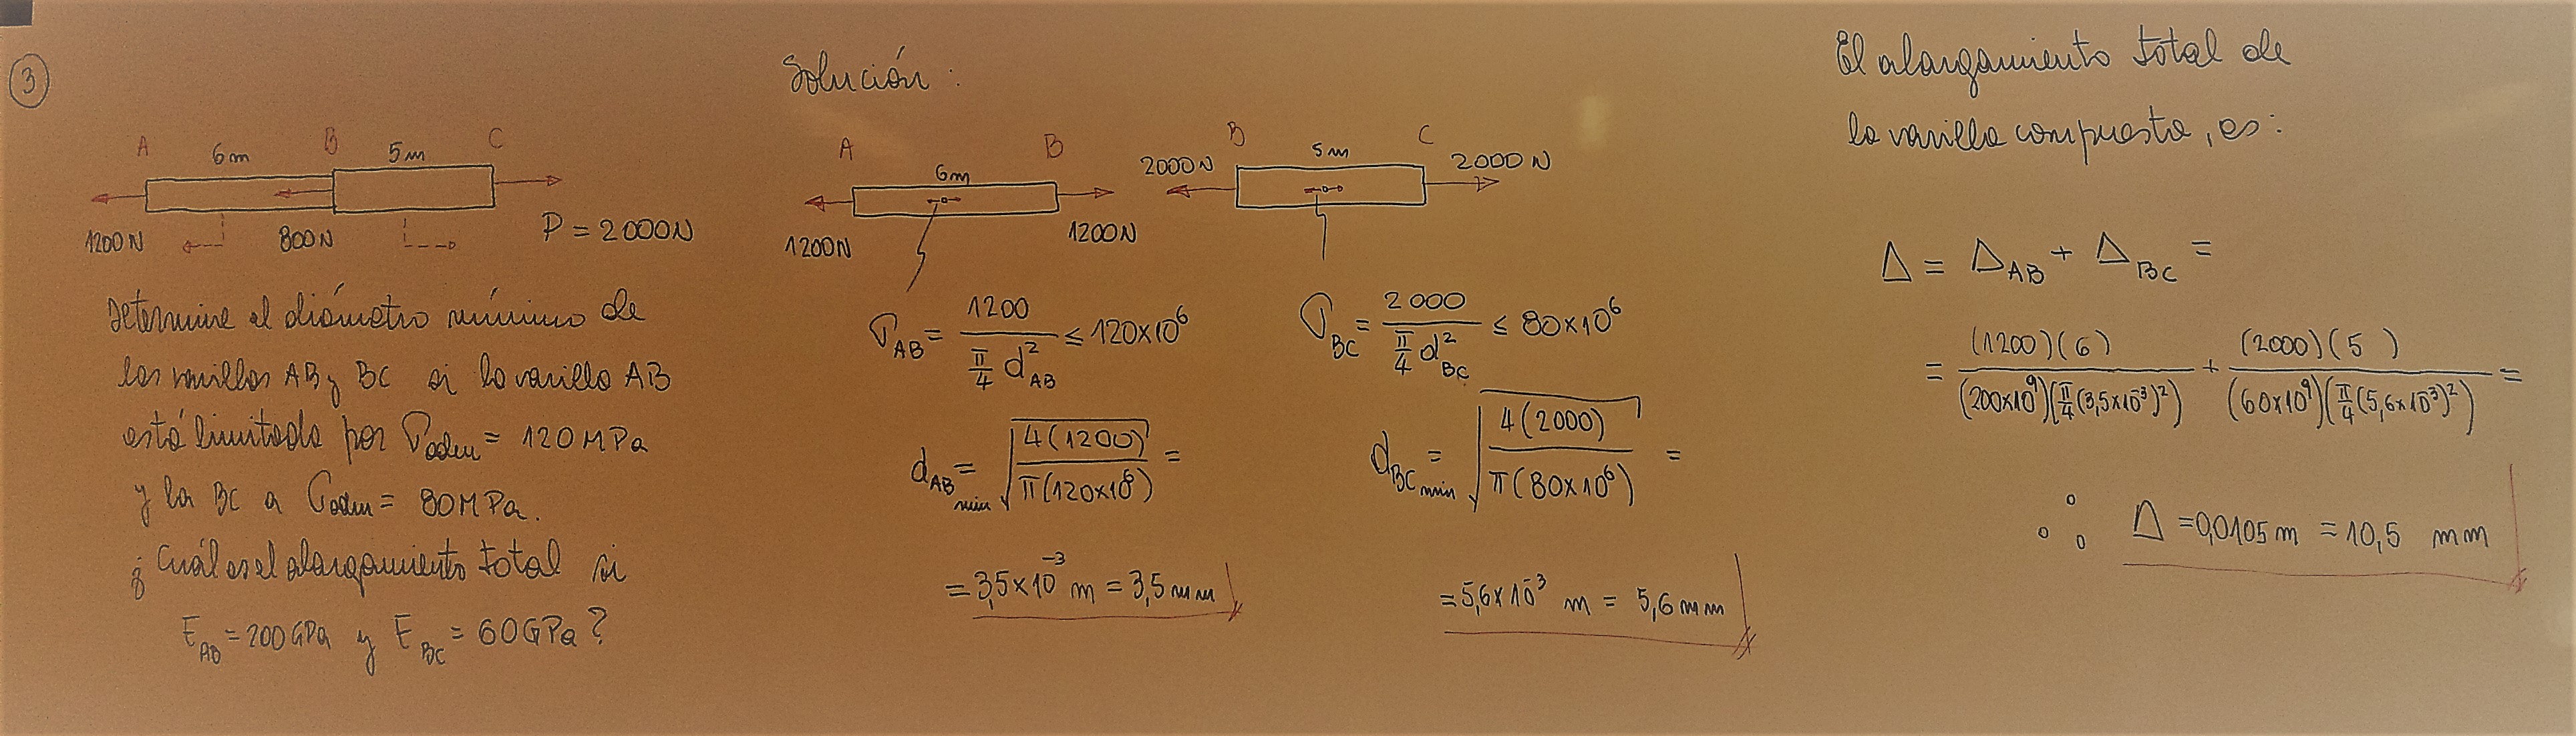 3
A 6m B 5m C
1200N 800N P = 2000N
Determine el diámetro mínimo de
las varillas AB y BC si la varilla AB
está limitada por σadm = 120MPa
y la BC a σadm = 80MPa.
¿Cuál es el alargamiento total si
E_AB = 200GPa y E_BC = 60GPa?
Solución:
A 6m B
1200N 1200N
σ_AB = 1200 / (π/4 d²_AB) ≤ 120×10⁶
d_AB min = √(4(1200) / π(120×10⁶)) =
= 3,5×10⁻³ m = 3,5mm
B 5m C
2000N 2000N
σ_BC = 2000 / (π/4 d²_BC) ≤ 80×10⁶
d_BC min = √(4(2000) / π(80×10⁶)) =
= 5,6×10⁻³ m = 5,6mm
El alargamiento total de
la varilla compuesta, es:
Δ = Δ_AB + Δ_BC =
= (1200)(6) / (200×10⁹)(π/4(3,5×10⁻³)²) + (2000)(5) / (60×10⁹)(π/4(5,6×10⁻³)²) =
∴ Δ = 0,0105m = 10,5 mm